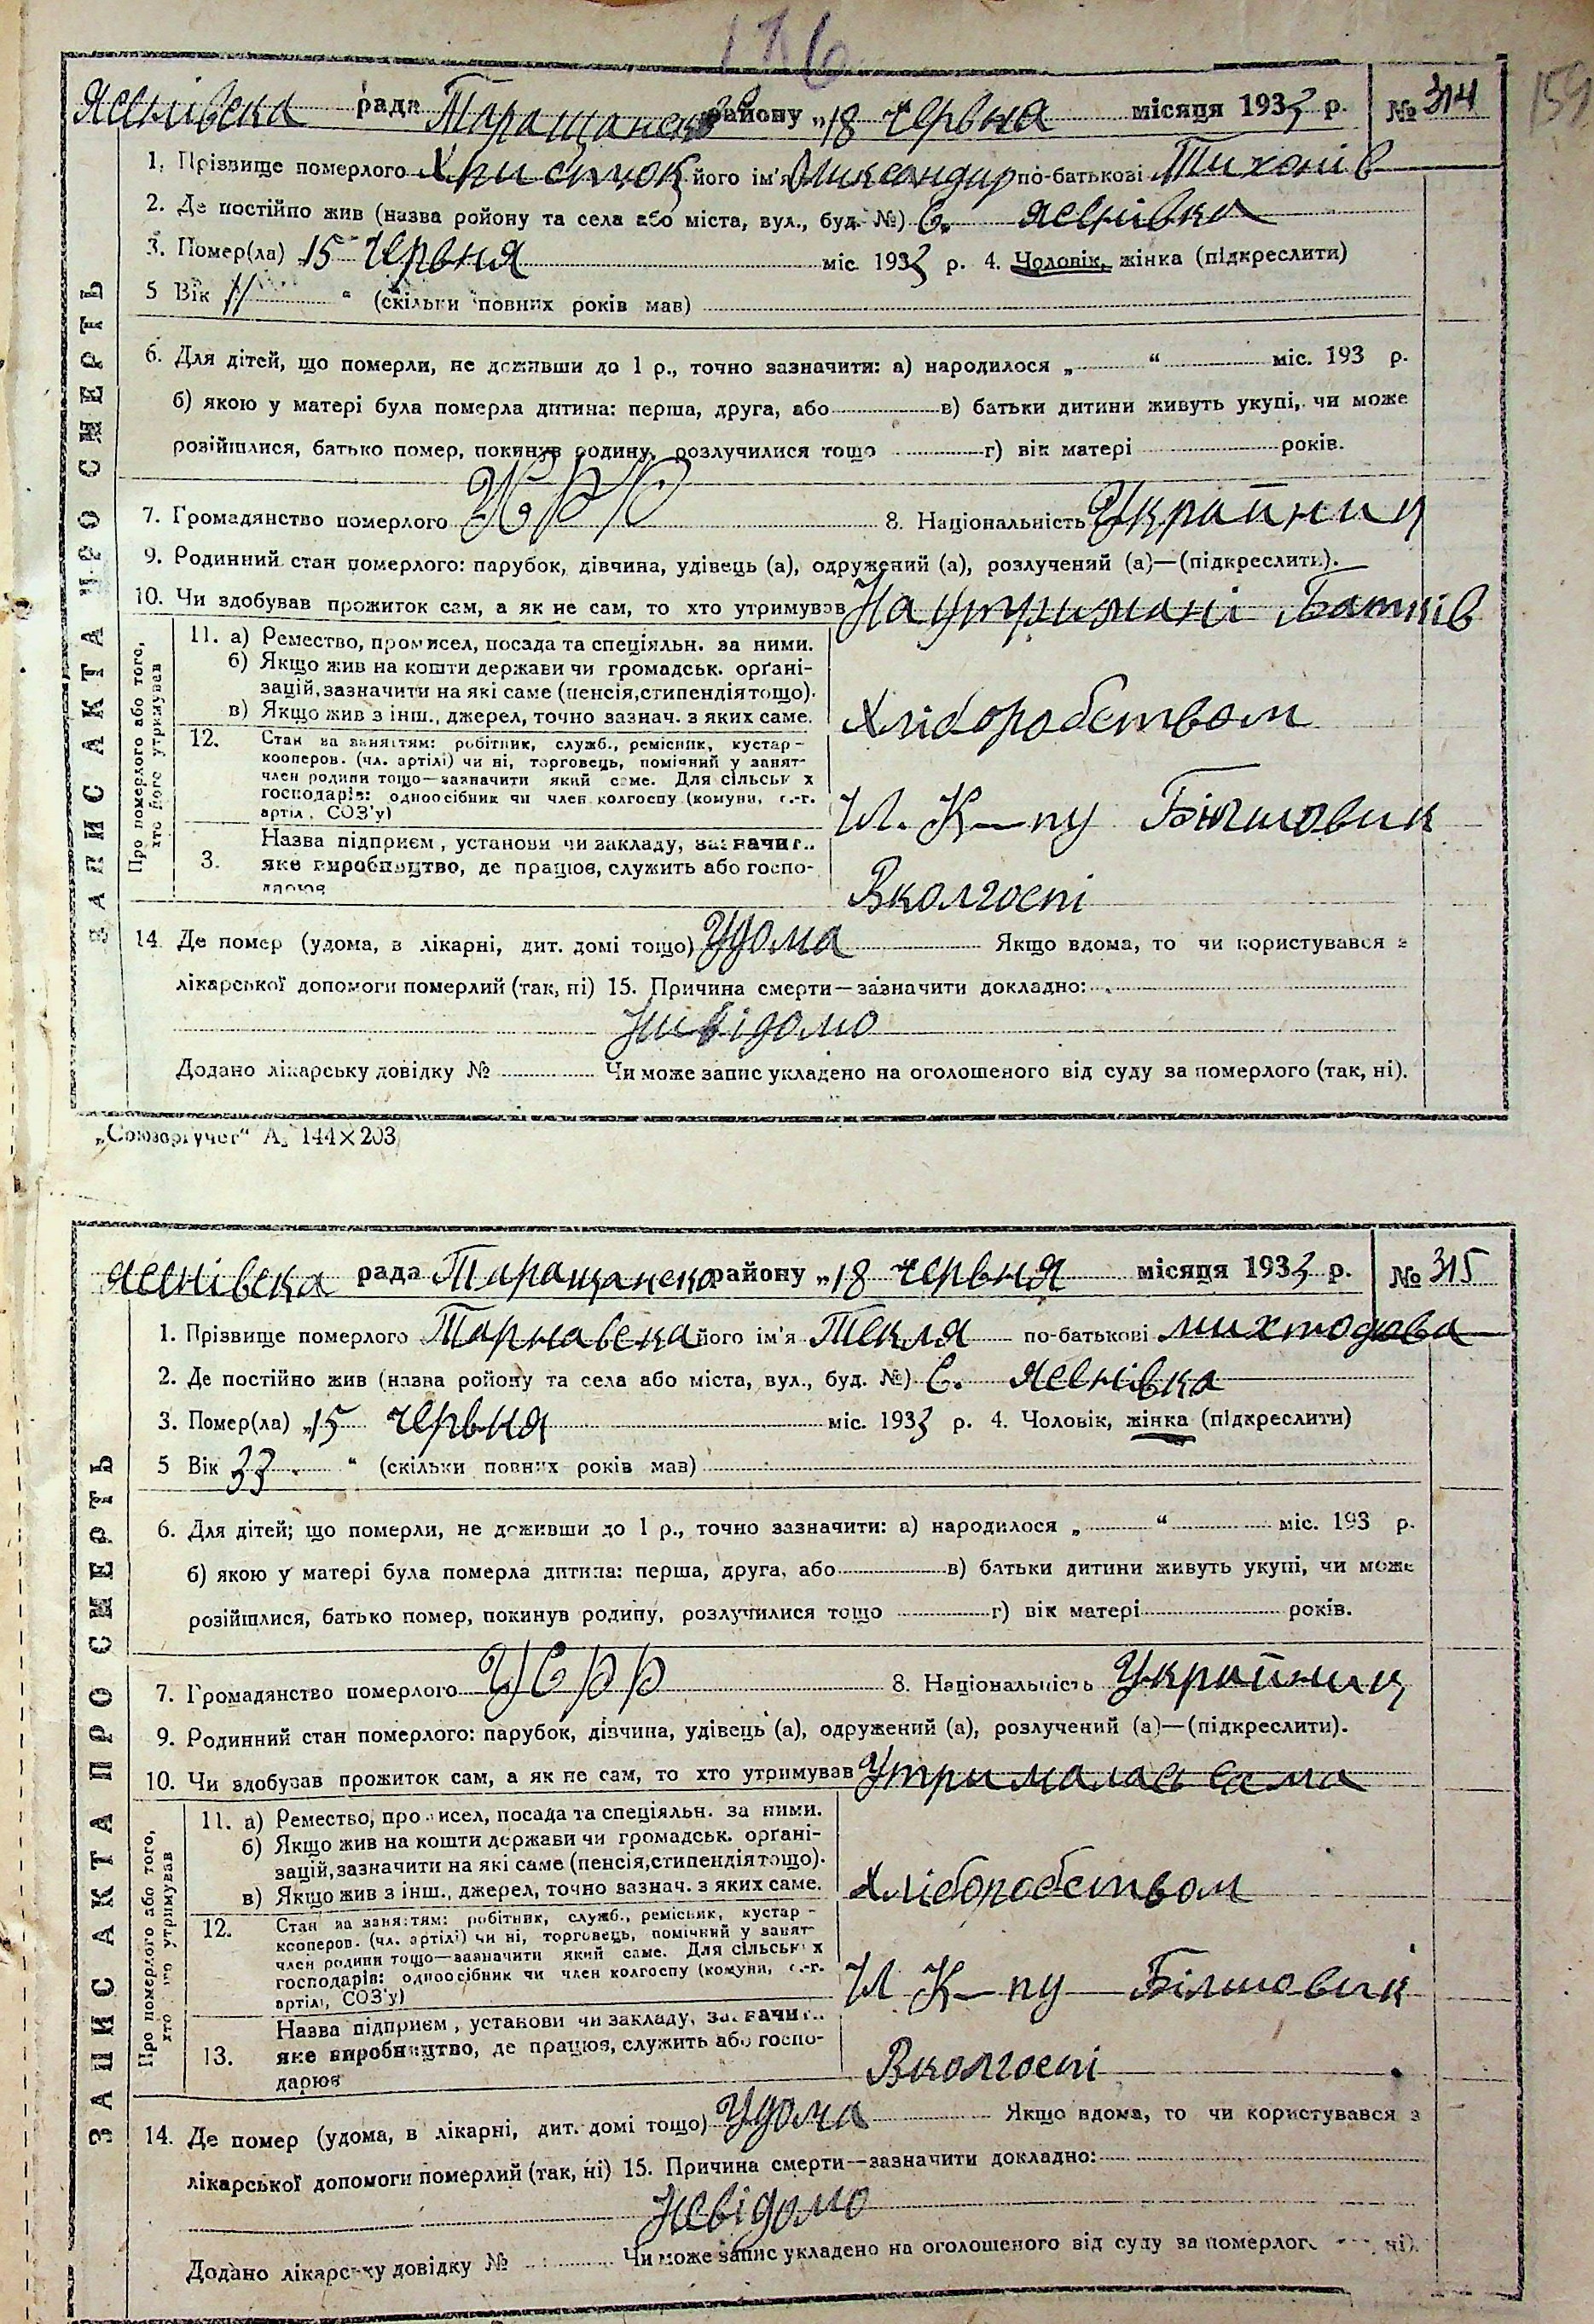 176
159
Яснівська рада Таращансько району „18 червня місяця 1933 р. № 314
1. Прізвище померлого Христюк його ім'я Олександир по-батькові Тихонів
2. Де постійно жив (назва ройону та села або міста, вул., буд. №) С. Яснівка
3. Помер(ла) „15 червня міс 1933 р. 4. Чоловік, жінка (підкреслити)
5 Вік 11 “ (скільки повних років мав)
6. Для дітей, що померли, не доживши до 1 р., точно зазначити: а) народилося „ “ міс. 193 р.
б) якою у матері була померла дитина: перша, друга, або в) батьки дитини живуть укупі, чи може
розійшлися, батько помер, покинув родину, розлучилися тощо г) вік матері років.
7. Громадянство померлого 8. Національність Украйниц
9. Родинний стан померлого: парубок, дівчина, удівець (а), одружений (а), розлучений (а)—(підкреслити).
10. Чи здобував прожиток сам, а як не сам, то хто утримував На утримані Батків
ЗАПИС АКТА ПРО СМЕРТЬ
Про померлого або того,
хто його утримував
11. а) Ремество, промисел, посада та спеціяльн. за ними.
б) Якщо жив на кошти держави чи громадськ. органі-
зацій, зазначити на які саме (пенсія, стипендія тощо).
в) Якщо жив з інш., джерел, точно зазнач. з яких саме. Хліборобством
12. Стан за заняттям: робітник, служб., ремісник, кустар -
кооперов. (чл. артілі) чи ні, торговець, помічний у занят-
член родини тощо—зазначити який саме. Для сільськ х
господарів: одноосібник чи член колгоспу (комуни, с.-г.
артіл, СОЗ'у) Чл. К–пу Більшовик
3. Назва підприєм , установи чи закладу, зазначит..
яке виробництво, де працює, служить або госпо-
дарює Вколгоспі
14. Де помер (удома, в лікарні, дит. домі тощо) Удома Якщо вдома, то чи користувався з
лікарської допомоги померлий (так, ні) 15. Причина смерти—зазначити докладно:
Невідомо
Додано лікарську довідку № Чи може запис укладено на оголошеного від суду за померлого (так, ні).
„Союзоргучет“ А5 144×203
Яснівська рада Таращансько району „18 червня місяця 1933 р. № 315
1. Прізвище померлого Тарнавська його ім'я Текля по-батькові
2. Де постійно жив (назва ройону та села або міста, вул., буд. №) С. Яснівка
3. Помер(ла) „15 червня міс. 1933 р. 4. Чоловік, жінка (підкреслити)
5 Вік 33 “ (скільки повних років мав)
6. Для дітей; що померли, не доживши до 1 р., точно зазначити: а) народилося „ “ міс. 193 р.
б) якою у матері була померла дитина: перша, друга, або в) батьки дитини живуть укупі, чи може
розійшлися, батько помер, покинув родину, розлучилися тощо г) вік матері років.
7. Громадянство померлого УСРР 8. Національність Украйниц
9. Родинний стан померлого: парубок, дівчина, удівець (а), одружений (а), розлучений (а)—(підкреслити).
10. Чи здобував прожиток сам, а як не сам, то хто утримував Утрималась сама
ЗАПИС АКТА ПРО СМЕРТЬ
Про померлого або того,
хто його утримував
11. а) Ремество, промисел, посада та спеціяльн. за ними.
б) Якщо жив на кошти держави чи громадськ. органі-
зацій, зазначити на які саме (пенсія, стипендія тощо).
в) Якщо жив з інш., джерел, точно зазнач. з яких саме. Хліборобством
12. Стан за заняттям: робітник, служб., ремісник, кустар -
кооперов. (чл. артілі) чи ні, торговець, помічний у занят-
член родини тощо—зазначити який саме. Для сільськ х
господарів: одноосібник чи член колгоспу (комуни, с.-г.
артілі, СОЗ'у) Чл К–пу Білшовик
13. Назва підприєм , установи чи закладу, зазначит..
яке виробництво, де працює, служить або госпо-
дарює Вколгоспі
14. Де помер (удома, в лікарні, дит. домі тощо) Удома Якщо вдома, то чи користувався з
лікарської допомоги померлий (так, ні) 15. Причина смерти—зазначити докладно:
Невідомо
Додано лікарську довідку № Чи може запис укладено на оголошеного від суду за померлого ні).